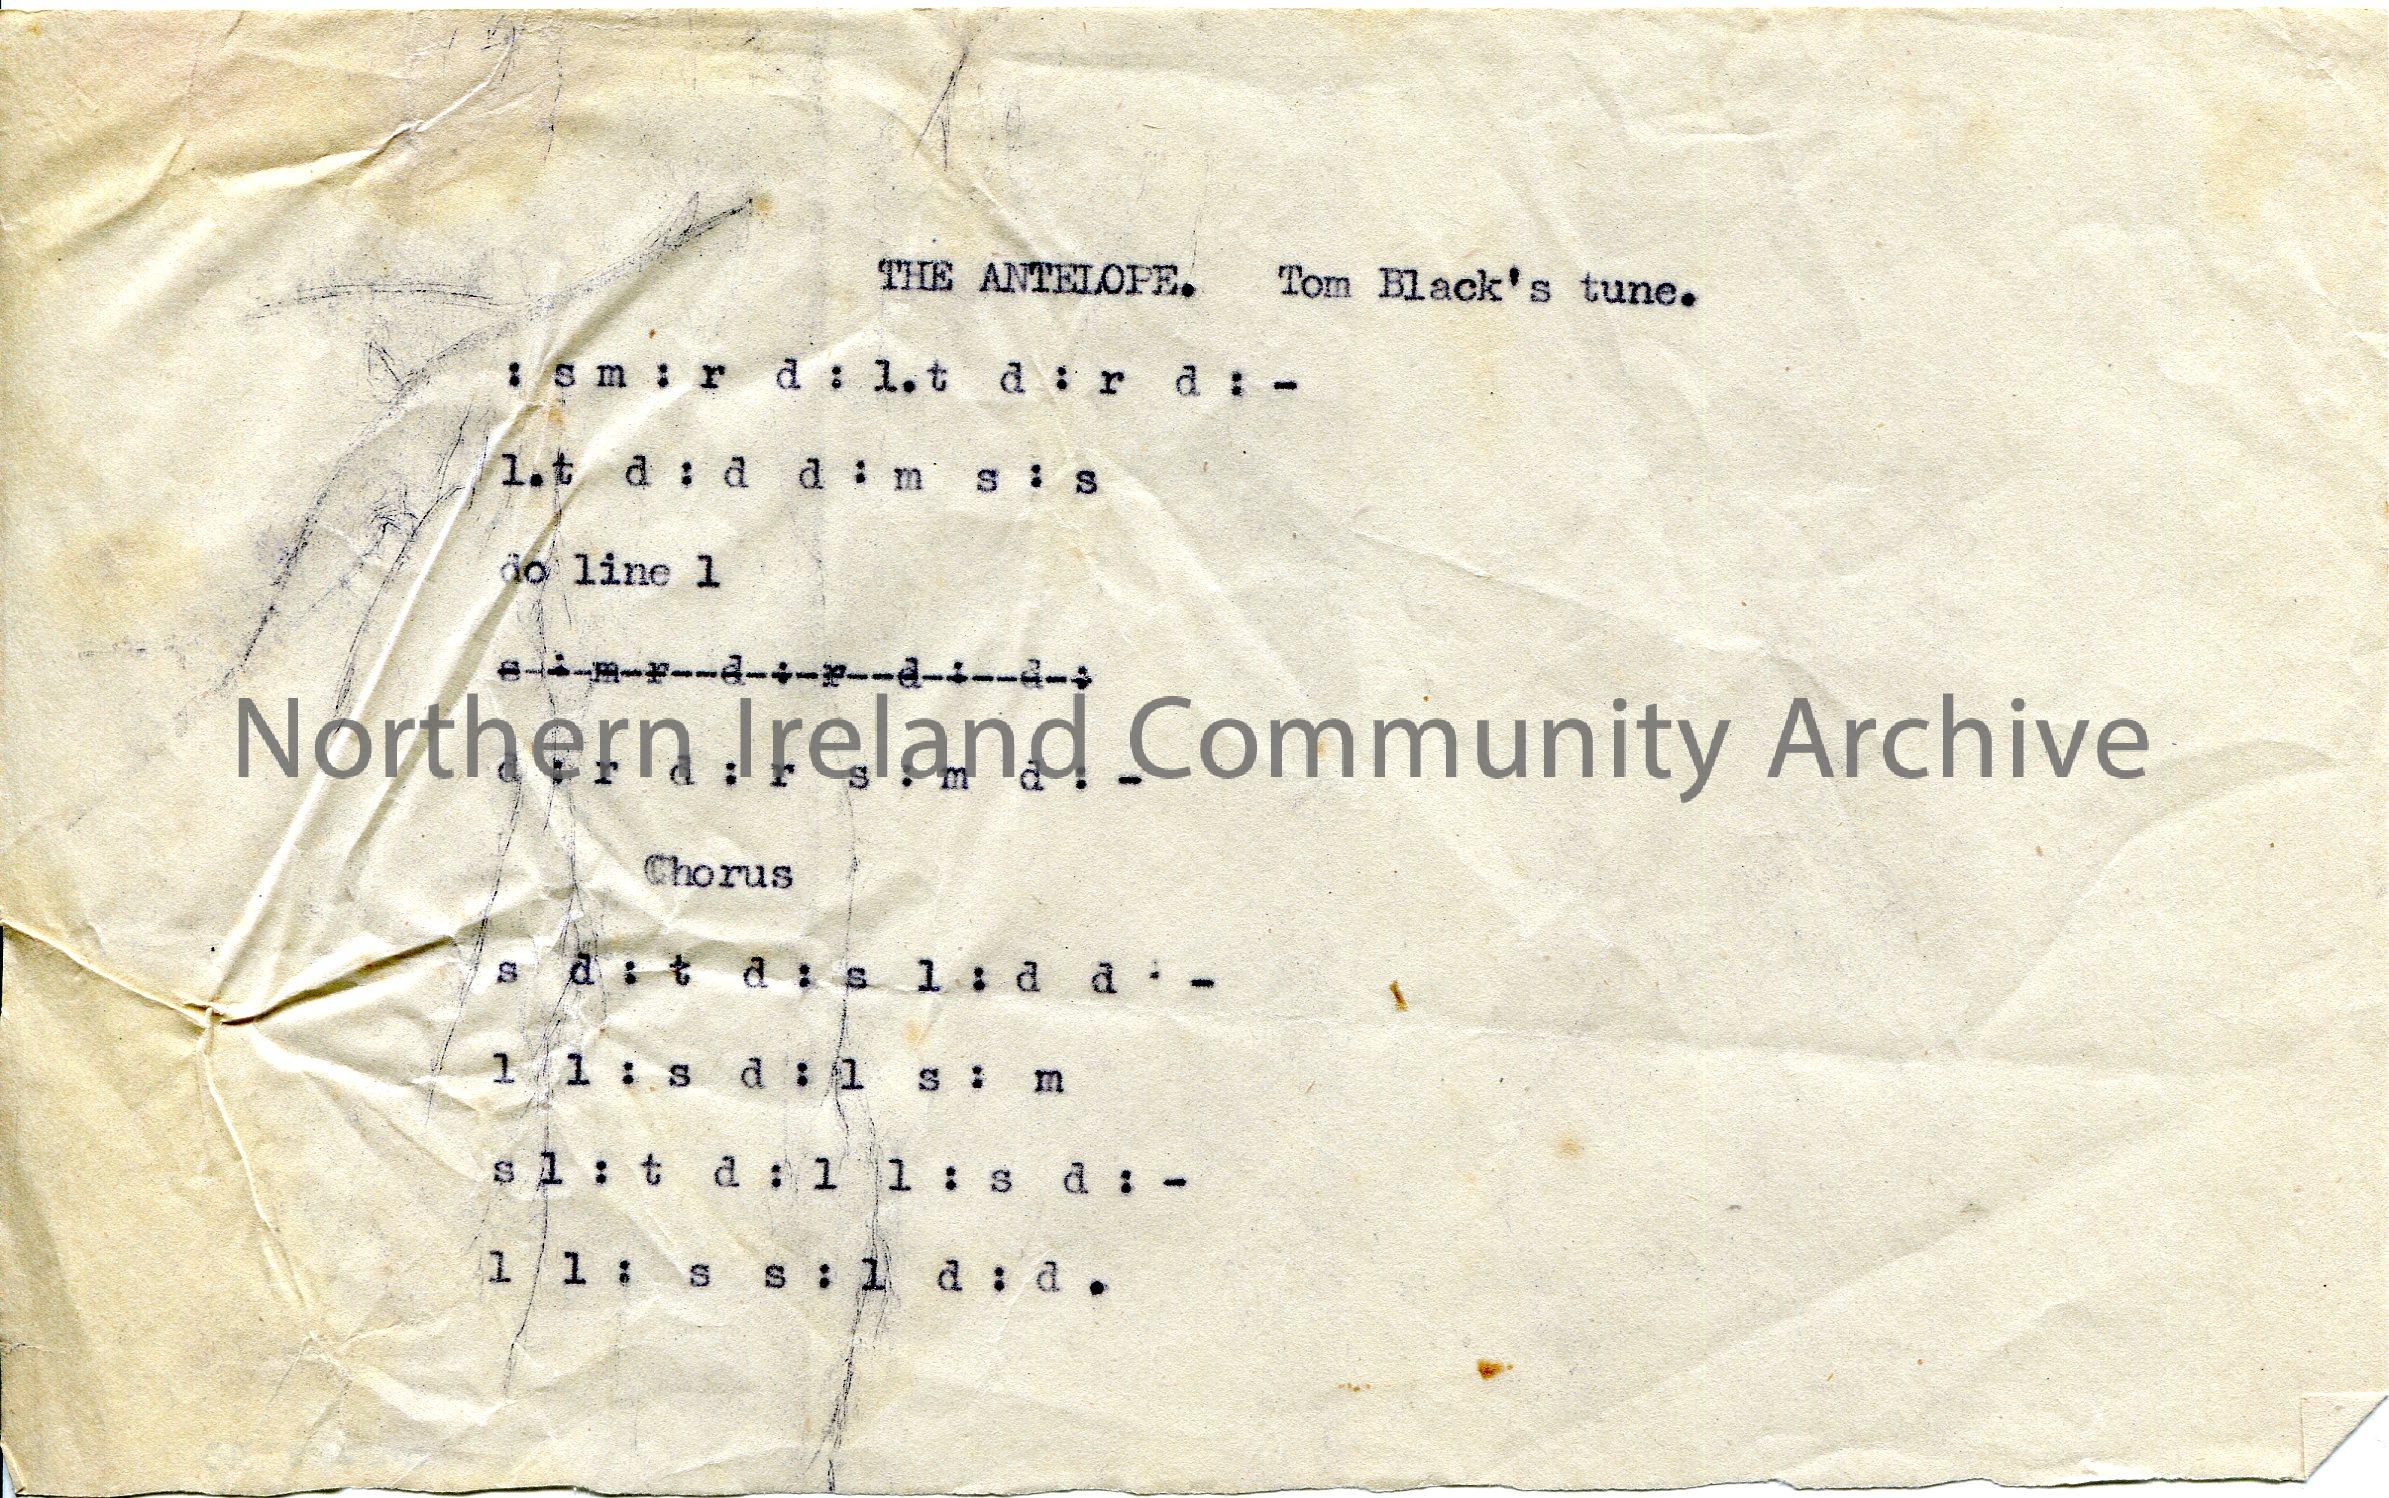 THE ANTELOPE. Tom Black's tune.
: s m : r d : l.t d : r d : -
l.t d : d d : m s : s
do line 1
s : m r d : r d : d :
Northern Ireland Community Archive
d : r d : r s : m d : -
Chorus
s d : t d : s l : d d : -
l l : s d : l s : m
s l : t d : l l : s d : -
l l : s s : l d : d .